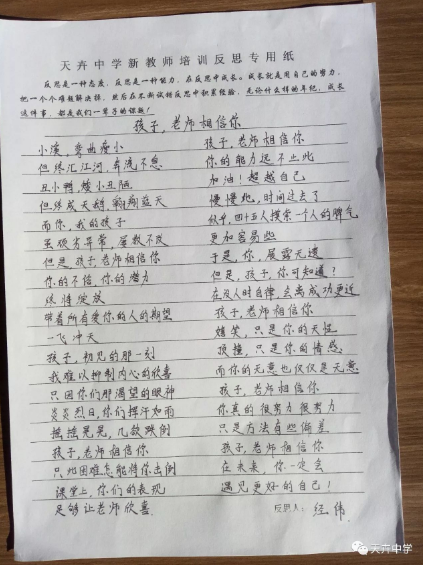 天卉中学新教师培训反思专用纸
反思是一种态度，反思是一种能力，在反思中成长。成长就是用自己的努力，
把一个个难题解决掉，然后在不断试错反思中积累经验，无论什么样的年纪，成长
这件事，都是我们一辈子的课题！
孩子，老师相信你
小溪，弯曲瘦小
但终汇江河，奔流不息
丑小鸭 矮小丑陋
但终成天鹅，翱翔蓝天
而你，我的孩子
虽顽劣异常，屡教不改
但是 孩子 老师相信你
你的不俗，你的潜力
终将绽放
带着所有爱你的人的期望
一飞冲天
孩子，初见的那一刻
我难以抑制内心的欣喜
只因你们那渴望的眼神
炎炎烈日，你们挥汗如雨
摇摇晃晃，几欲跌倒
孩子，老师相信你
只此困难怎能将你击倒
课堂上，你们的表现
足够让老师欣喜
孩子，老师相信你
你的能力远不止此
加油！超越自己
慢慢地，时间过去了
四十五人摸索一个人的脾气
更加容易些
于是，你，展露无遗
但是，孩子，你可知道？
在没人时自律，会离成功更近
孩子，老师相信你
嬉笑，只是你的天性
顶撞，只是你的情感
而你的无意也仅仅是无意
孩子，老师相信你
你真的很努力很努力
只是方法有些偏差
孩子，老师相信你
在未来，你一定会
遇见更好的自己！
反思人：经伟
天卉中学